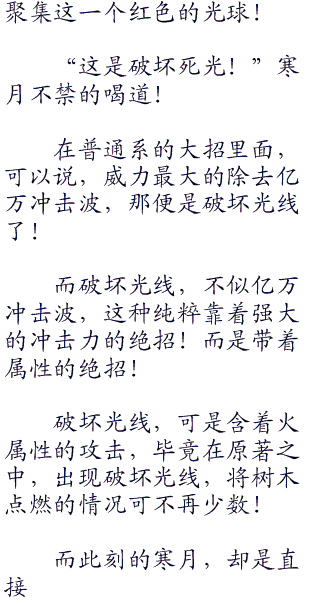 聚集这一个红色的光球！
“这是破坏死光！”寒
月不禁的喝道！
在普通系的大招里面，
可以说，威力最大的除去亿
万冲击波，那便是破坏光线
了！
而破坏光线，不似亿万
冲击波，这种纯粹靠着强大
的冲击力的绝招！而是带着
属性的绝招！
破坏光线，可是含着火
属性的攻击，毕竟在原著之
中，出现破坏光线，将树木
点燃的情况可不再少数！
而此刻的寒月，却是直
接